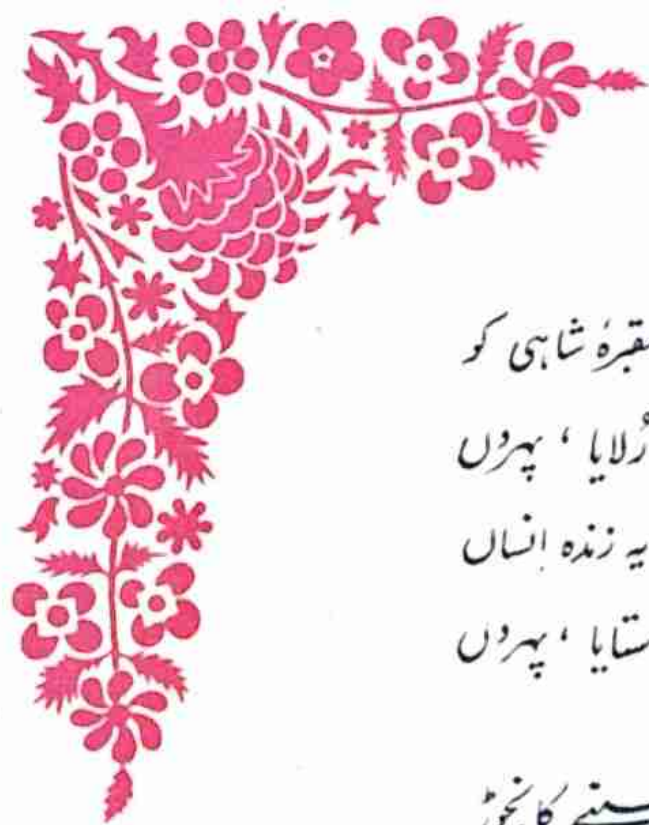 مقبرۂ شاہی کو
رُلایا ، پہروں
یہ زندہ انساں
ستایا ، پہروں
کا نچوڑ